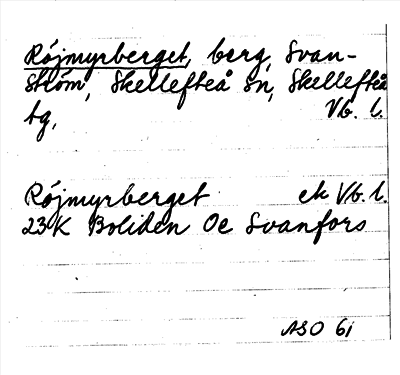 Röjmyrberget, berg, Svan-
ström, Skellefteå sn, Skellefteå
tg, Vb. l.
Röjmyrberget ek Vb. l.
23K Boliden Oc Svanfors
ASO 61